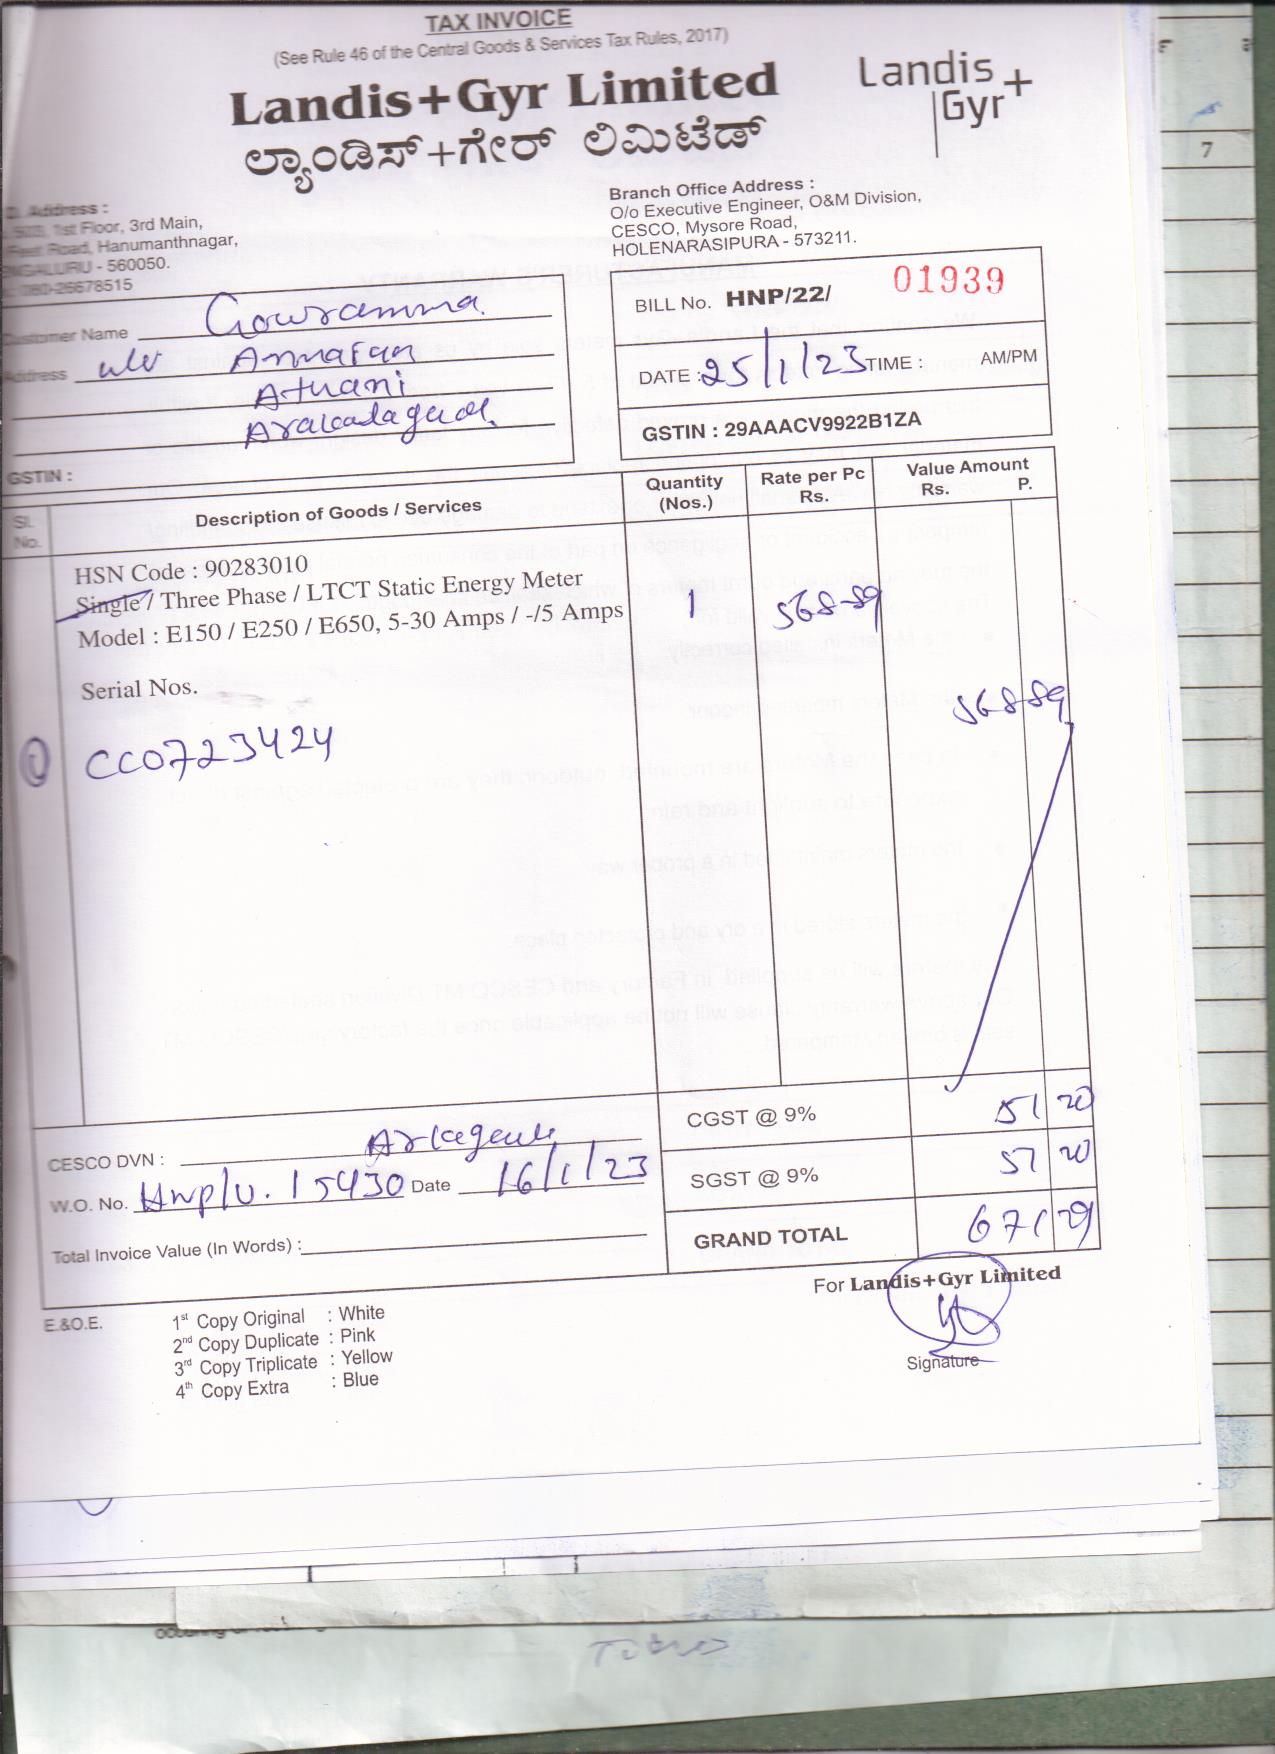 TAX INVOICE
(See Rule 46 of the Central Goods & Services Tax Rules, 2017)
Landis+Gyr Limited
ಲ್ಯಾಂಡಿಸ್+ಗೇರ್ ಲಿಮಿಟೆಡ್
Landis
Gyr+
Address :
1st Floor, 3rd Main,
Feet Road, Hanumanthnagar,
- 560050.
080-26678515
Branch Office Address :
O/o Executive Engineer, O&M Division,
CESCO, Mysore Road,
HOLENARASIPURA - 573211.
Customer Name Gowramma
Address w/o Annaian
Athani
GSTIN :
BILL No. HNP/22/ 01939
DATE : 25/1/23 TIME : AM/PM
GSTIN : 29AAACV9922B1ZA
Sl. No. Description of Goods / Services Quantity (Nos.) Rate per Pc Rs. Value Amount Rs. P.
HSN Code : 90283010
Single / Three Phase / LTCT Static Energy Meter
Model : E150 / E250 / E650, 5-30 Amps / -/5 Amps 1 568-89
Serial Nos.
568 89
① CC0723424
CGST @ 9% 51 20
SGST @ 9% 51 20
GRAND TOTAL 671 29
CESCO DVN :
W.O. No. 15430 Date 16/1/23
Total Invoice Value (In Words) :
For Landis+Gyr Limited
Signature
E.&O.E.
1st Copy Original : White
2nd Copy Duplicate : Pink
3rd Copy Triplicate : Yellow
4th Copy Extra : Blue
7